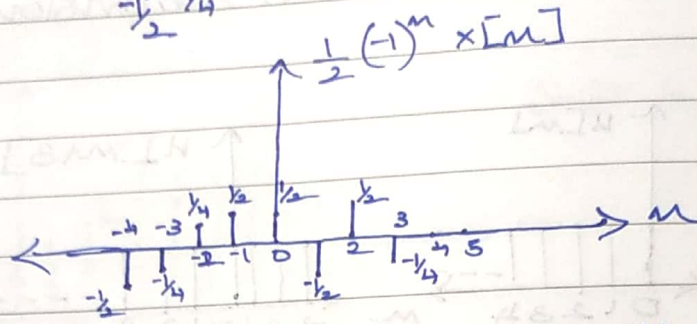 -1/2 1/4
1/2 (-1)^n x[n]
1/4 1/2 1/2 1/2
-4 -3 3
-2 -1 0 2 4 5 n
-1/2 -1/4 -1/2 -1/4